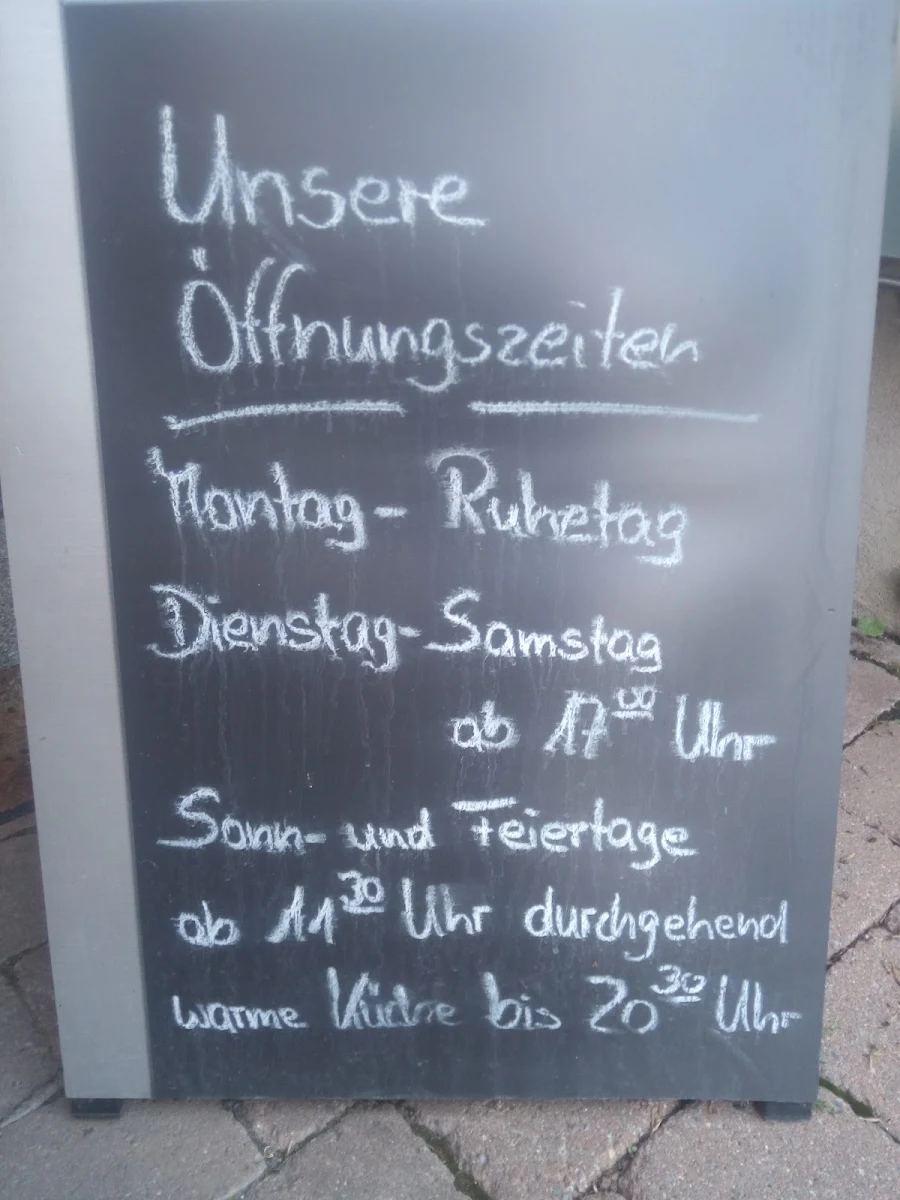 Unsere
Öffnungszeiten
Montag - Ruhetag
Dienstag - Samstag
ab 17⁰⁰ Uhr
Sonn- und Feiertage
ab 11³⁰ Uhr durchgehend
warme Küche bis 20³⁰ Uhr